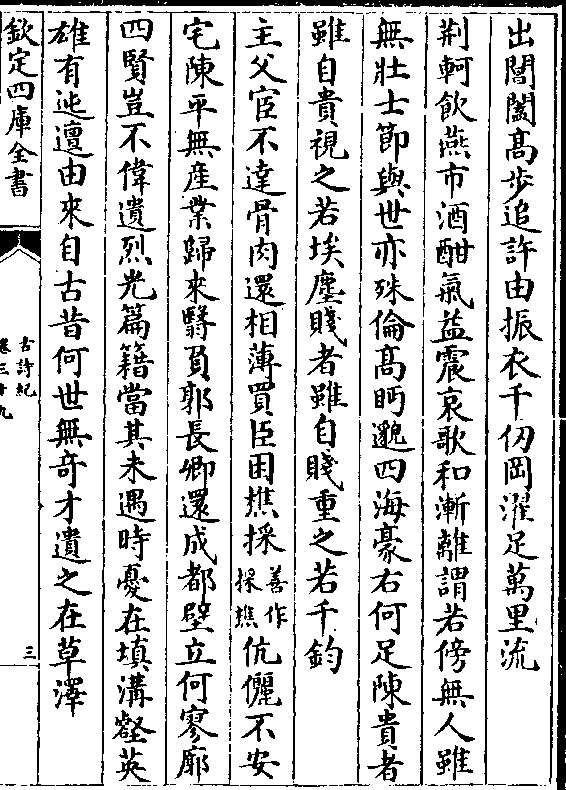 出閶闔高步追許由振衣千仭岡濯足萬里流
荆軻飲燕市酒酣氣益震哀歌和漸離謂若傍無人雖
無壯士節與世亦殊倫高眄邈四海豪右何足陳貴者
雖自貴視之若埃塵賤者雖自賤重之若千鈞
主父宦不達骨肉還相薄買臣困樵採善作採樵伉儷不安
宅陳平無産業歸來翳負郭長卿還成都壁立何寥廓
四賢豈不偉遺烈光篇籍當其未遇時憂在填溝壑英
雄有迍邅由來自古昔何世無竒才遺之在草澤
欽定四庫全書
古詩紀
卷三十九
三